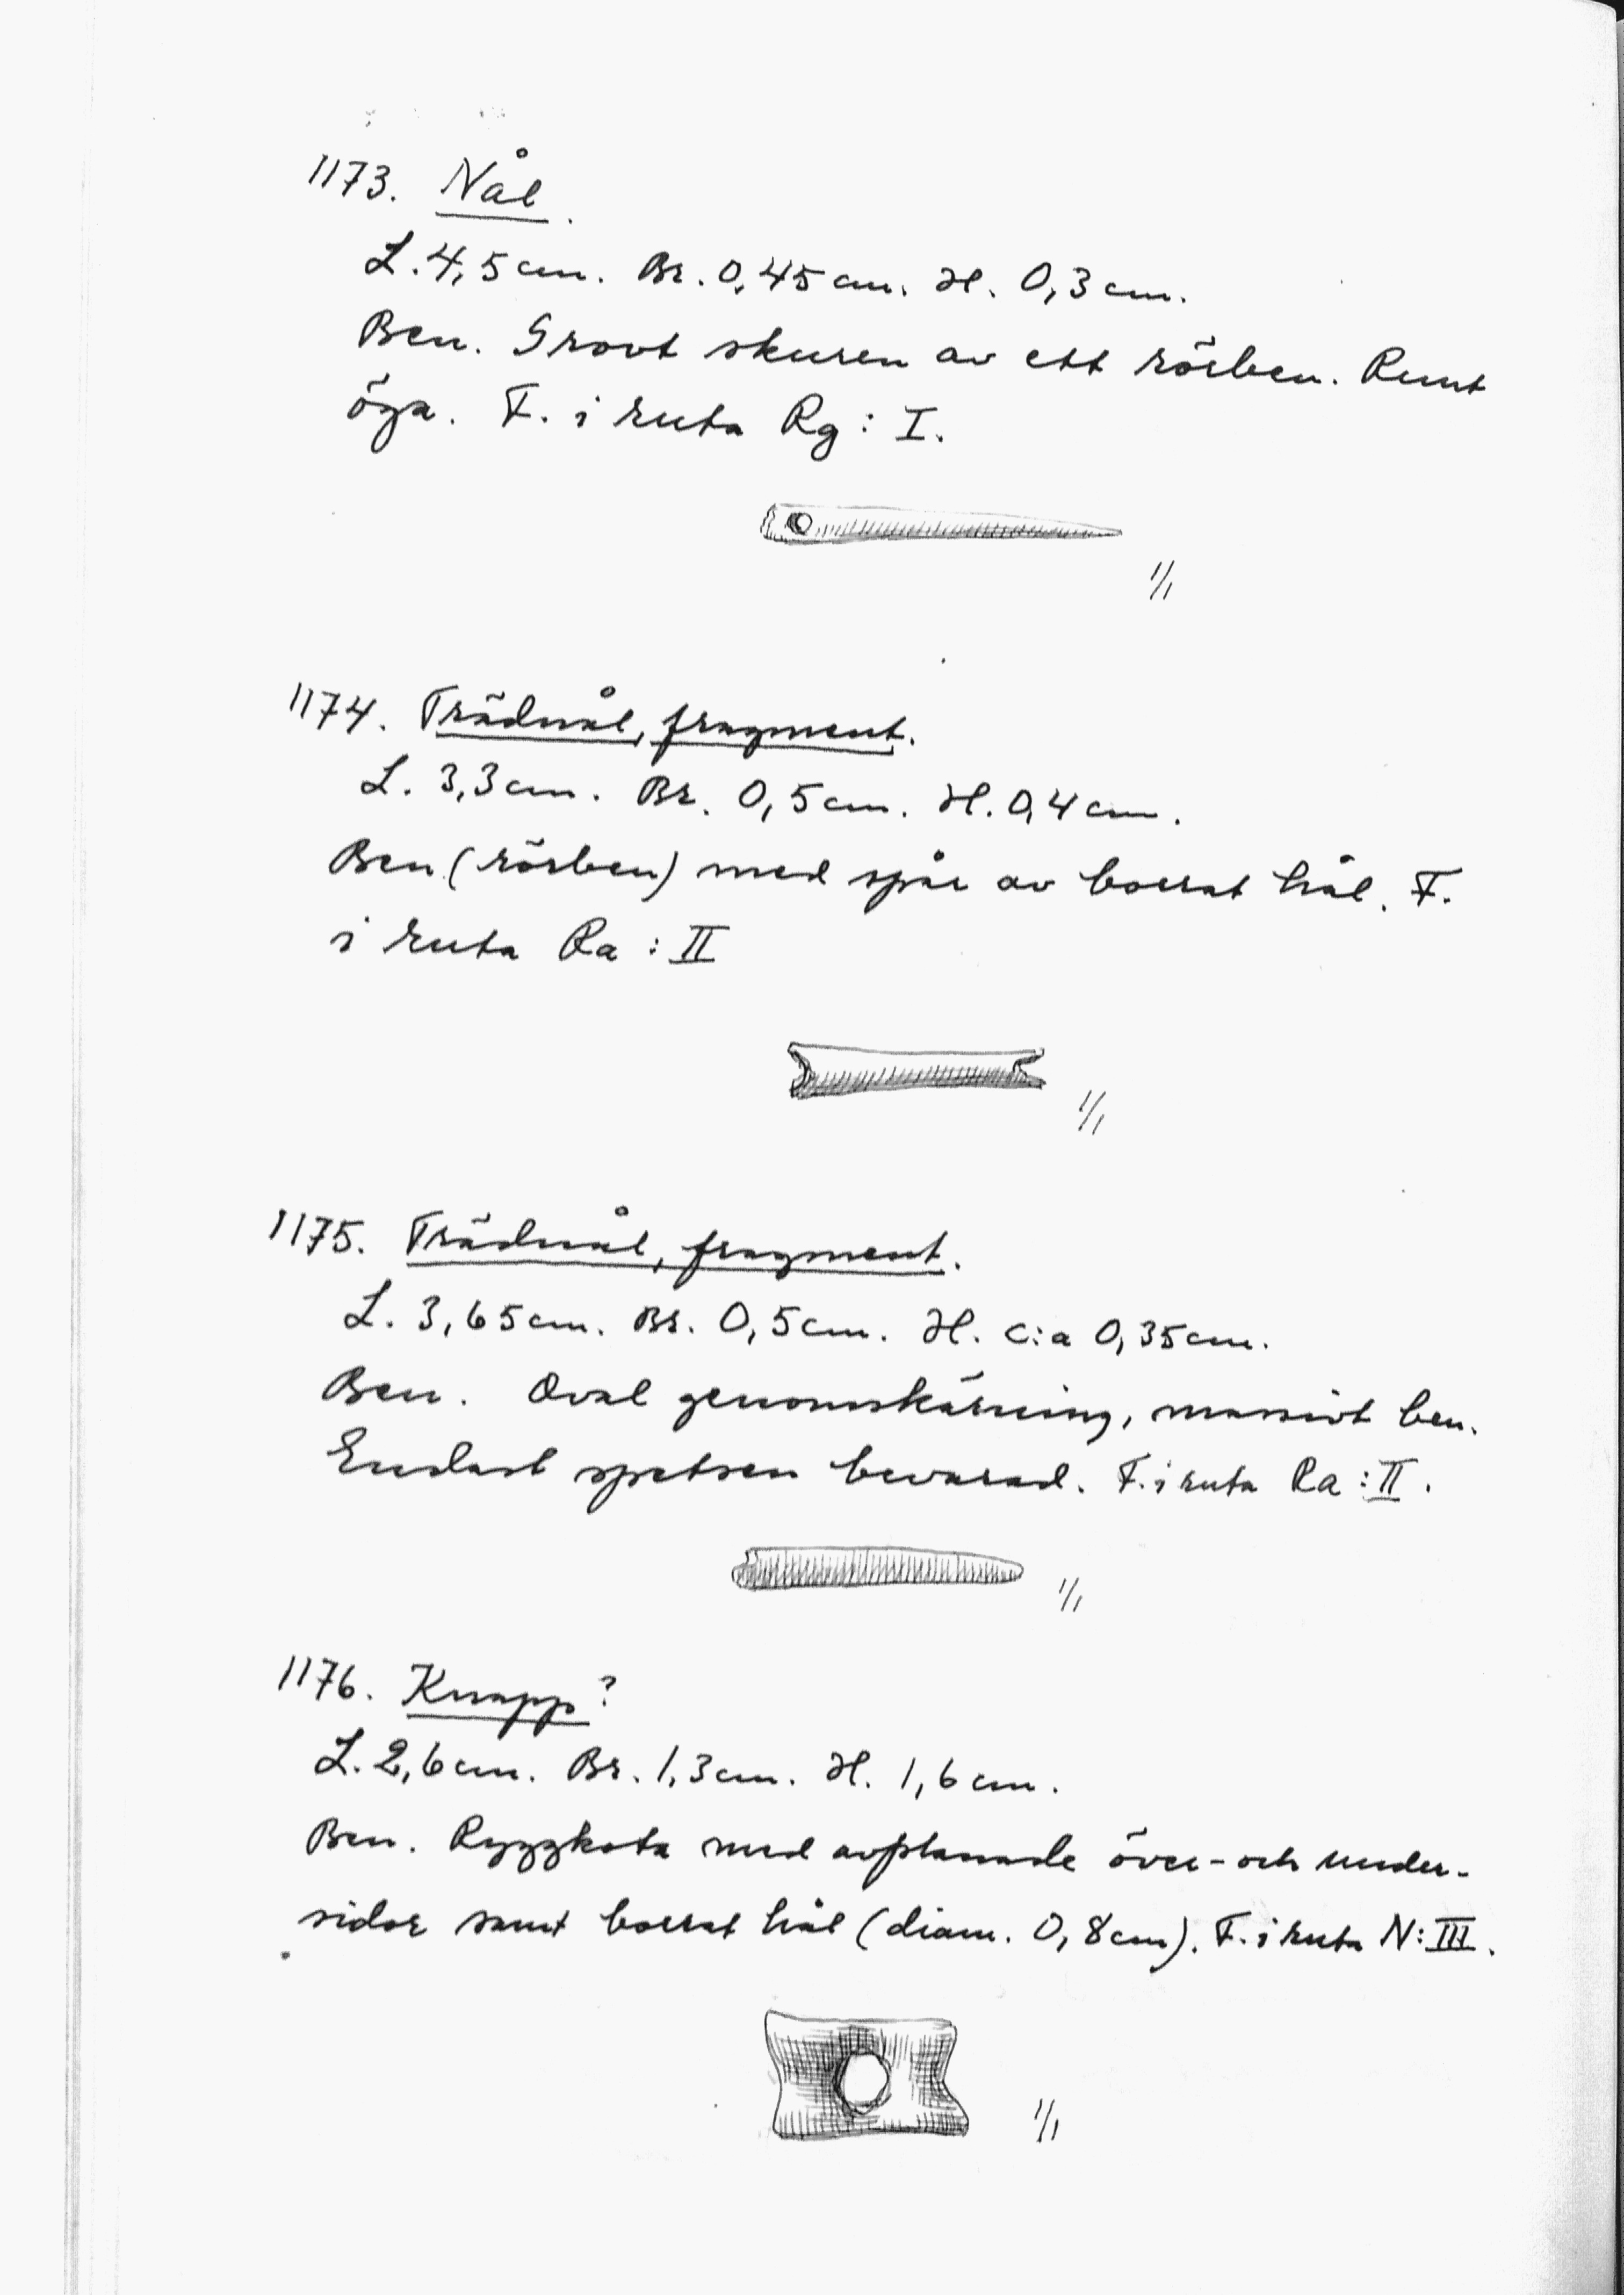 1173. Nål.
L. 4,5 cm. Br. 0,45 cm. H. 0,3 cm.
Ben. Grovt skuren av ett rörben. Runt
öga. F. i ruta Rg: I.
1/1
1174. Trädnål, fragment.
L. 3,3 cm. Br. 0,5 cm. H. 0,4 cm.
Ben (rörben) med spår av borrat hål. F.
i ruta Ra : II
1/1
1175. Trädnål, fragment.
L. 3,65 cm. Br. 0,5 cm. H. c:a 0,35 cm.
Ben. Oval genomskärning, massivt ben.
Endast spetsen bevarad. F. i ruta Ra : II.
1/1
1176. Knapp?
L. 2,6 cm. Br. 1,3 cm. H. 1,6 cm.
Ben. Ryggkota med avplanade över- och under-
sidor samt borrat hål (diam. 0,8 cm). F. i ruta N: III.
1/1